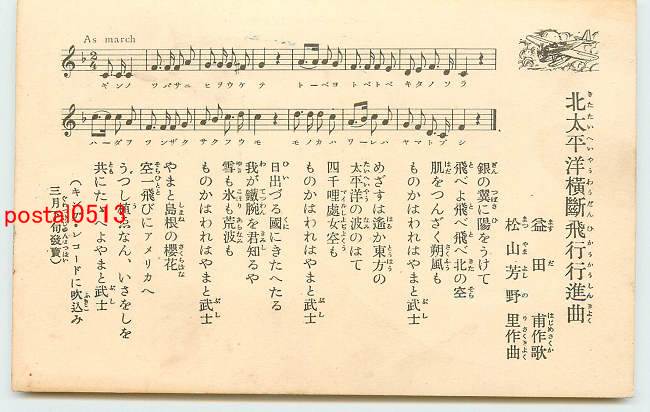 As march
ギンノ ツバサニ ヒヲウケテ トベヨ トベトベ キタノソラ
ハダヲ ツンザク サクフウモ モノカハ ワレハ ヤマトブシ
北太平洋橫斷飛行行進曲
益田 甫作歌
松山芳野里作曲
銀の翼に陽をうけて
飛べよ飛べ飛べ北の空
肌をつんざく朔風も
ものかはわれはやまと武士
めざすは遙か東方の
太平洋の波のはて
四千哩處女空も
ものかはわれはやまと武士
日出づる國にきたへたる
我が鐵腕を君知るや
雪も氷も荒波も
ものかはわれはやまと武士
やまと島根の櫻花
空一飛びにアメリカへ
うつし植ゑなん、いさをしを
共にたゝへよやまと武士
レコードに吹込み
三月
發賣）
postal0513